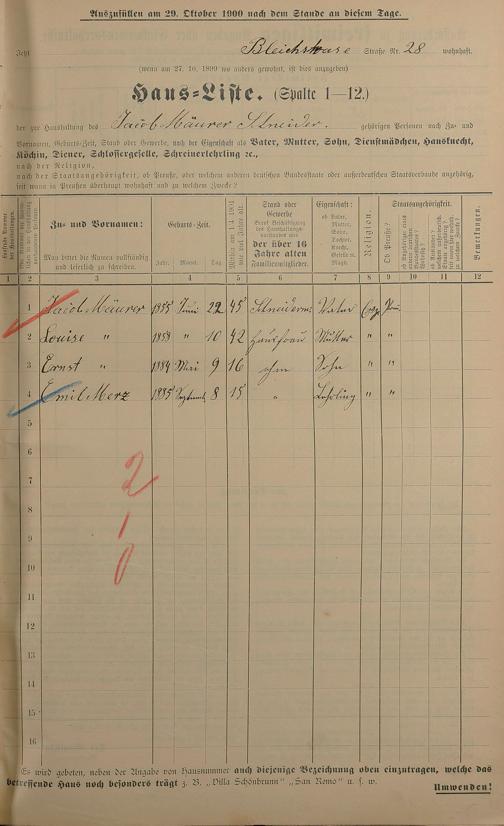 Auszufüllen am 29. Oktober 1900 nach dem Stande an diesem Tage.
Jetzt Bleichstrase Straße Nr. 28 wohnhaft.
(wenn am 27. 10. 1899 wo anders gewohnt, ist dies anzugeben)
Haus-Liste. (Spalte 1—12.)
der zur Haushaltung des Jacob Mäurer Schneider. gehörigen Personen nach Zu- und
Vornamen, Geburts-Zeit, Stand oder Gewerbe, nach der Eigenschaft als Vater, Mutter, Sohn, Dienstmädchen, Hausknecht,
Köchin, Diener, Schlossergeselle, Schreinerlehrling ꝛc.,
nach der Religion,
nach der Staatsangehörigkeit, ob Preuße, oder welchem anderen deutschen Bundesstaate oder außerdeutschem Staatsverbande angehörig,
seit wann in Preußen überhaupt wohnhaft und zu welchem Zwecke?
Zu- und Vornamen:
Man bittet die Namen vollständig und leserlich zu schreiben.
Geburts-Zeit.
Jahr. Monat. Tag.
Stand oder Gewerbe
der über 16 Jahre alten
Familienmitglieder.
Eigenschaft:
ob Vater, Mutter, Sohn, Tochter, Knecht, Geselle u. Magd.
Religion.
Staatsangehörigkeit.
Ob Preuße?
Bemerkungen.
1 2 3 4 5 6 7 8 9 10 11 12
1 Jacob Mäurer 1855 Juni 22 45 Vater
2 Louise " 1858 " 10 42 Hausfrau Mutter " "
3 Ernst " 1884 Mai 9 16 ohne Sohn " "
4 Emil Merz 1885 Septemb 8 15 " Lehrling " "
5
6
7
8
9
10
11
12
13
14
15
16
2
1
0
Es wird gebeten, neben der Angabe von Hausnummer auch diejenige Bezeichnung oben einzutragen, welche das
betreffende Haus noch besonders trägt z. B. „Villa Schönbrunn" „San Remo" u. s. w.
Umwenden!